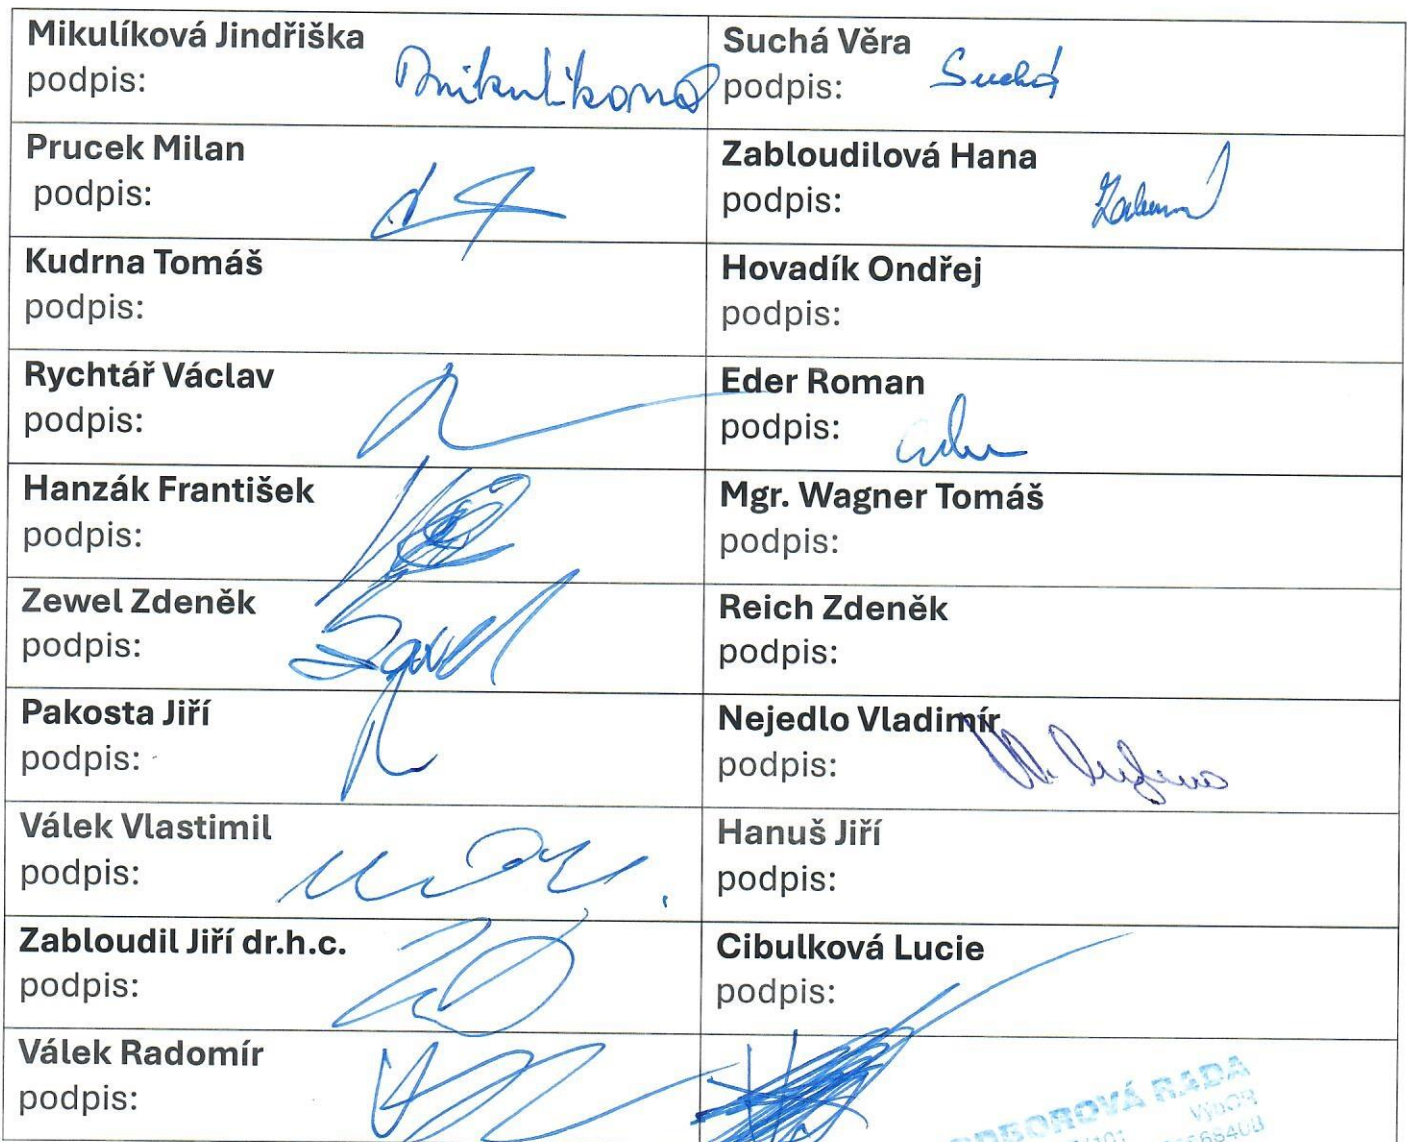 Mikulíková Jindřiška
podpis: Mikulíková
Suchá Věra
podpis: Suchá
Prucek Milan
podpis:
Zabloudilová Hana
podpis:
Kudrna Tomáš
podpis:
Hovadík Ondřej
podpis:
Rychtář Václav
podpis:
Eder Roman
podpis:
Hanzák František
podpis:
Mgr. Wagner Tomáš
podpis:
Zewel Zdeněk
podpis:
Reich Zdeněk
podpis:
Pakosta Jiří
podpis:
Nejedlo Vladimír
podpis:
Válek Vlastimil
podpis:
Hanuš Jiří
podpis:
Zabloudil Jiří dr.h.c.
podpis:
Cibulková Lucie
podpis:
Válek Radomír
podpis:
ODBOROVÁ RADA